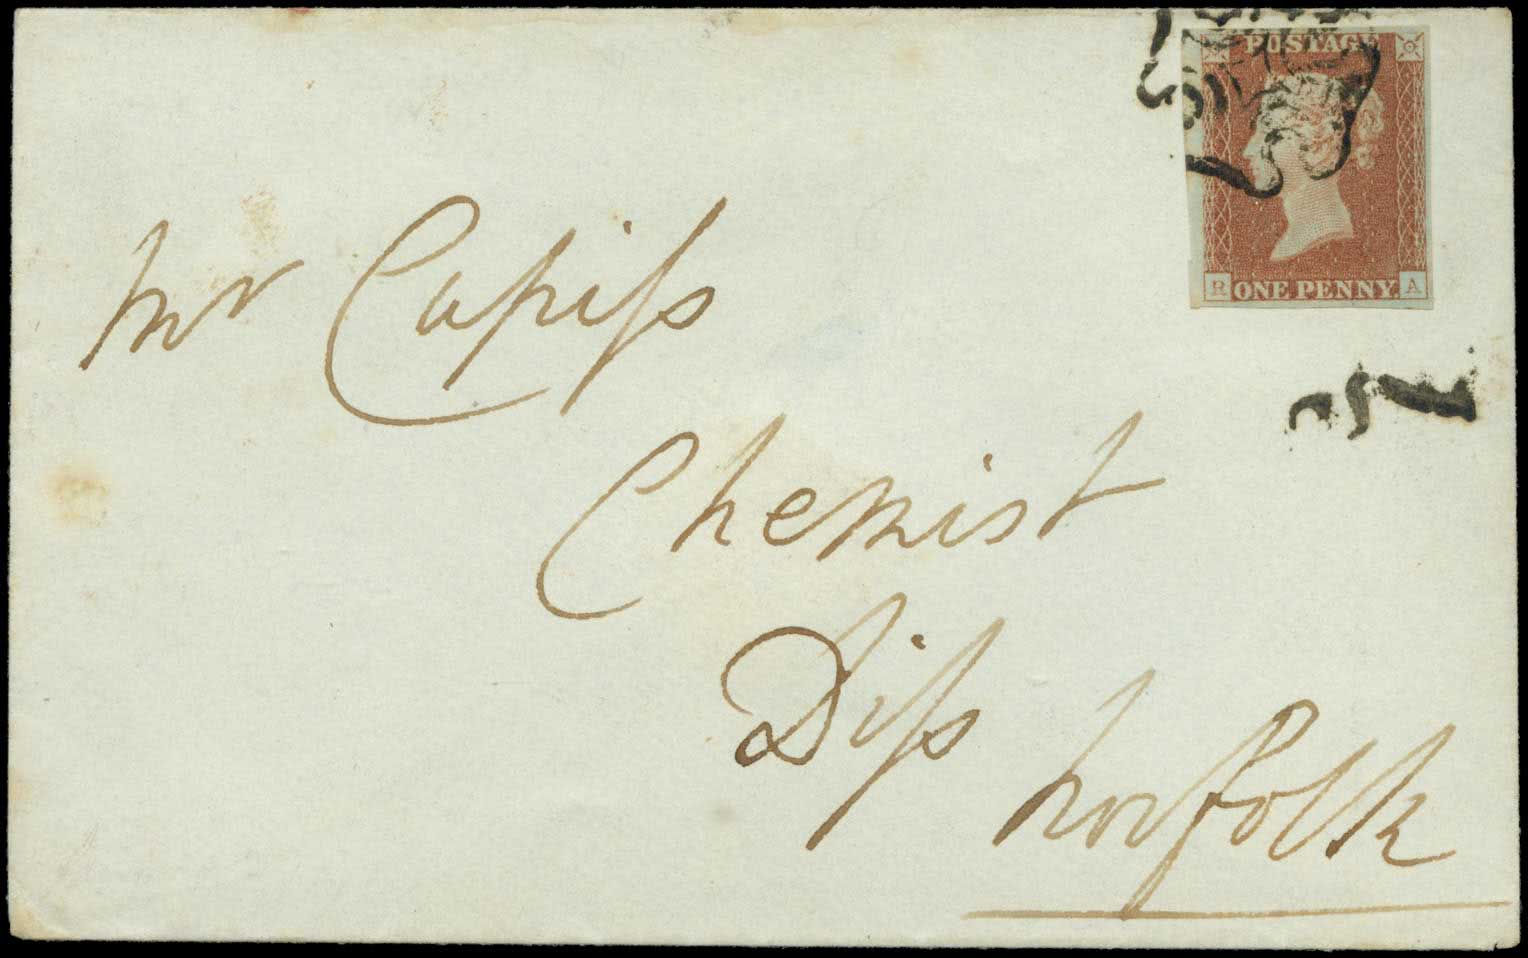 POSTAGE
R A
ONE PENNY
Mr Capiſs
Chemist
Diſs
Norfolk